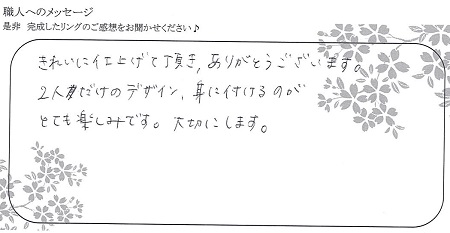 職人へのメッセージ
是非 完成したリングのご感想をお聞かせください♪
きれいに仕上げて頂き、ありがとうございます。
2人だけのデザイン、身に付けるのが
とても楽しみです。大切にします。